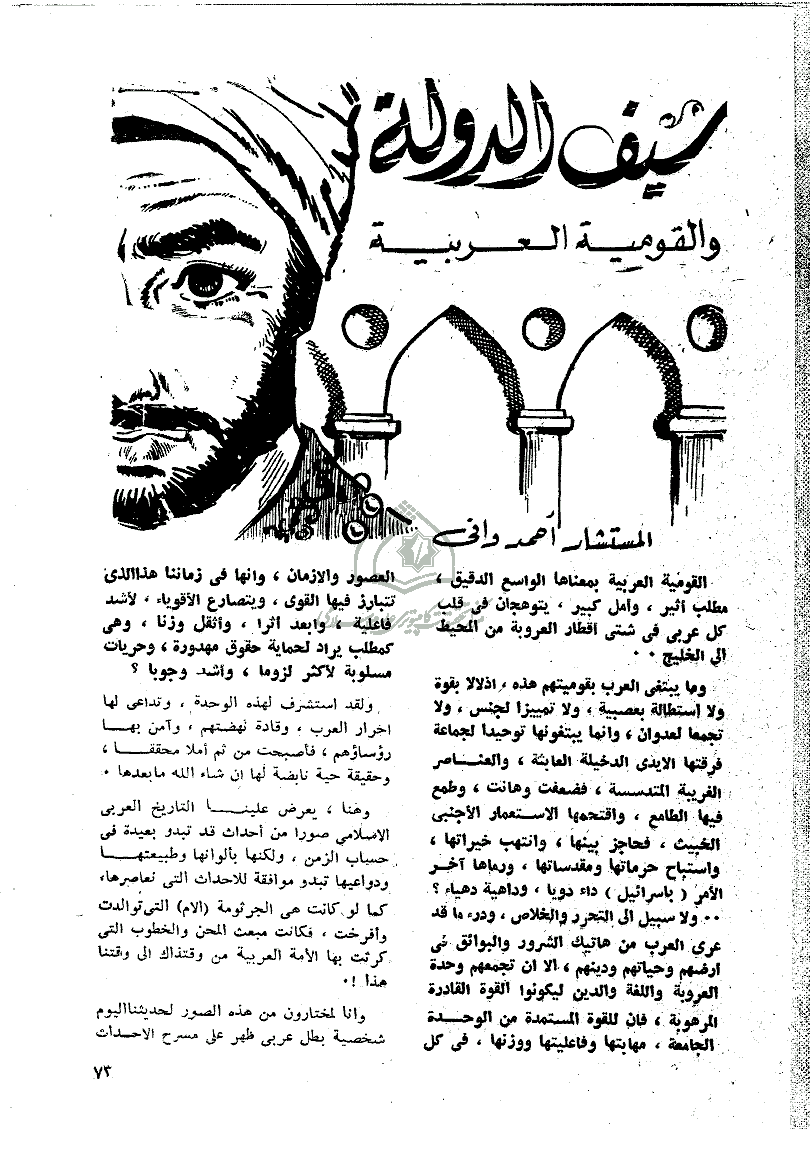 سيف الدولة
والقومية العربية
المستشار أحمد وافى
القومية العربية بمعناها الواسع الدقيق ،
مطلب أثير ، وأمل كبير ، يتوهجان فى قلب
كل عربى فى شتى أقطار العروبة من المحيط
الى الخليج ٠٠
وما يبتغى العرب بقوميتهم هذه ، اذلالا بقوة
ولا استطالة بعصبية ، ولا تمييزا لجنس ، ولا
تجمعا لعدوان ، وانما يبتغونها توحيدا لجماعة
فرقتها الايدى الدخيلة العابثة ، والعناصر
الغريبة المندسسة ، فضعفت وهانت ، وطمع
فيها الطامع ، واقتحمها الاستعمار الأجنبى
الخبيث ، فحاجز بينها ، وانتهب خيراتها ،
واستباح حرماتها ومقدساتها ، ورماها آخر
الأمر ( باسرائيل ) داء دويا ، وداهية دهياء ؟
٠٠ ولا سبيل الى التحرر والخلاص ، ودرء ما قد
عرى العرب من هاتيك الشرور والبوائق فى
ارضهم وحياتهم ودينهم ، الا ان تجمعهم وحدة
العروبة واللغة والدين ليكونوا القوة القادرة
المرهوبة ، فان للقوة المستمدة من الوحدة
الجامعة ، مهابتها وفاعليتها ووزنها ، فى كل
العصور والازمان ، وانها فى زماننا هذاالذى
تتبارز فيها القوى ، ويتصارع الأقوياء ، لأشد
فاعلية ، وابعد أثرا ، وأثقل وزنا ، وهى
كمطلب يراد لحماية حقوق مهدورة ، وحريات
مسلوبة لأكثر لزوما ، وأشد وجوبا ؟
ولقد استشرف لهذه الوحدة ، وتداعى لها
احرار العرب ، وقادة نهضتهم ، وآمن بها
رؤساؤهم ، فأصبحت من ثم أملا محققا ،
وحقيقة حية نابضة لها إن شاء الله مابعدها ٠
وهنا ، يعرض علينا التاريخ العربى
الاسلامى صورا من أحداث قد تبدو بعيدة فى
حساب الزمن ، ولكنها بألوانها وطبيعتها
ودواعيها تبدو موافقة للاحداث التى نعاصرها،
كما لو كانت هى الجرثومة (الام) التى توالدت
وأفرخت ، فكانت مبعث المحن والخطوب التى
كرثت بها الأمة العربية من وقتذاك الى وقتنا
هذا !٠
وانا لمختارون من هذه الصور لحديثنااليوم
شخصية بطل عربى ظهر على مسرح الاحداث
٧٣